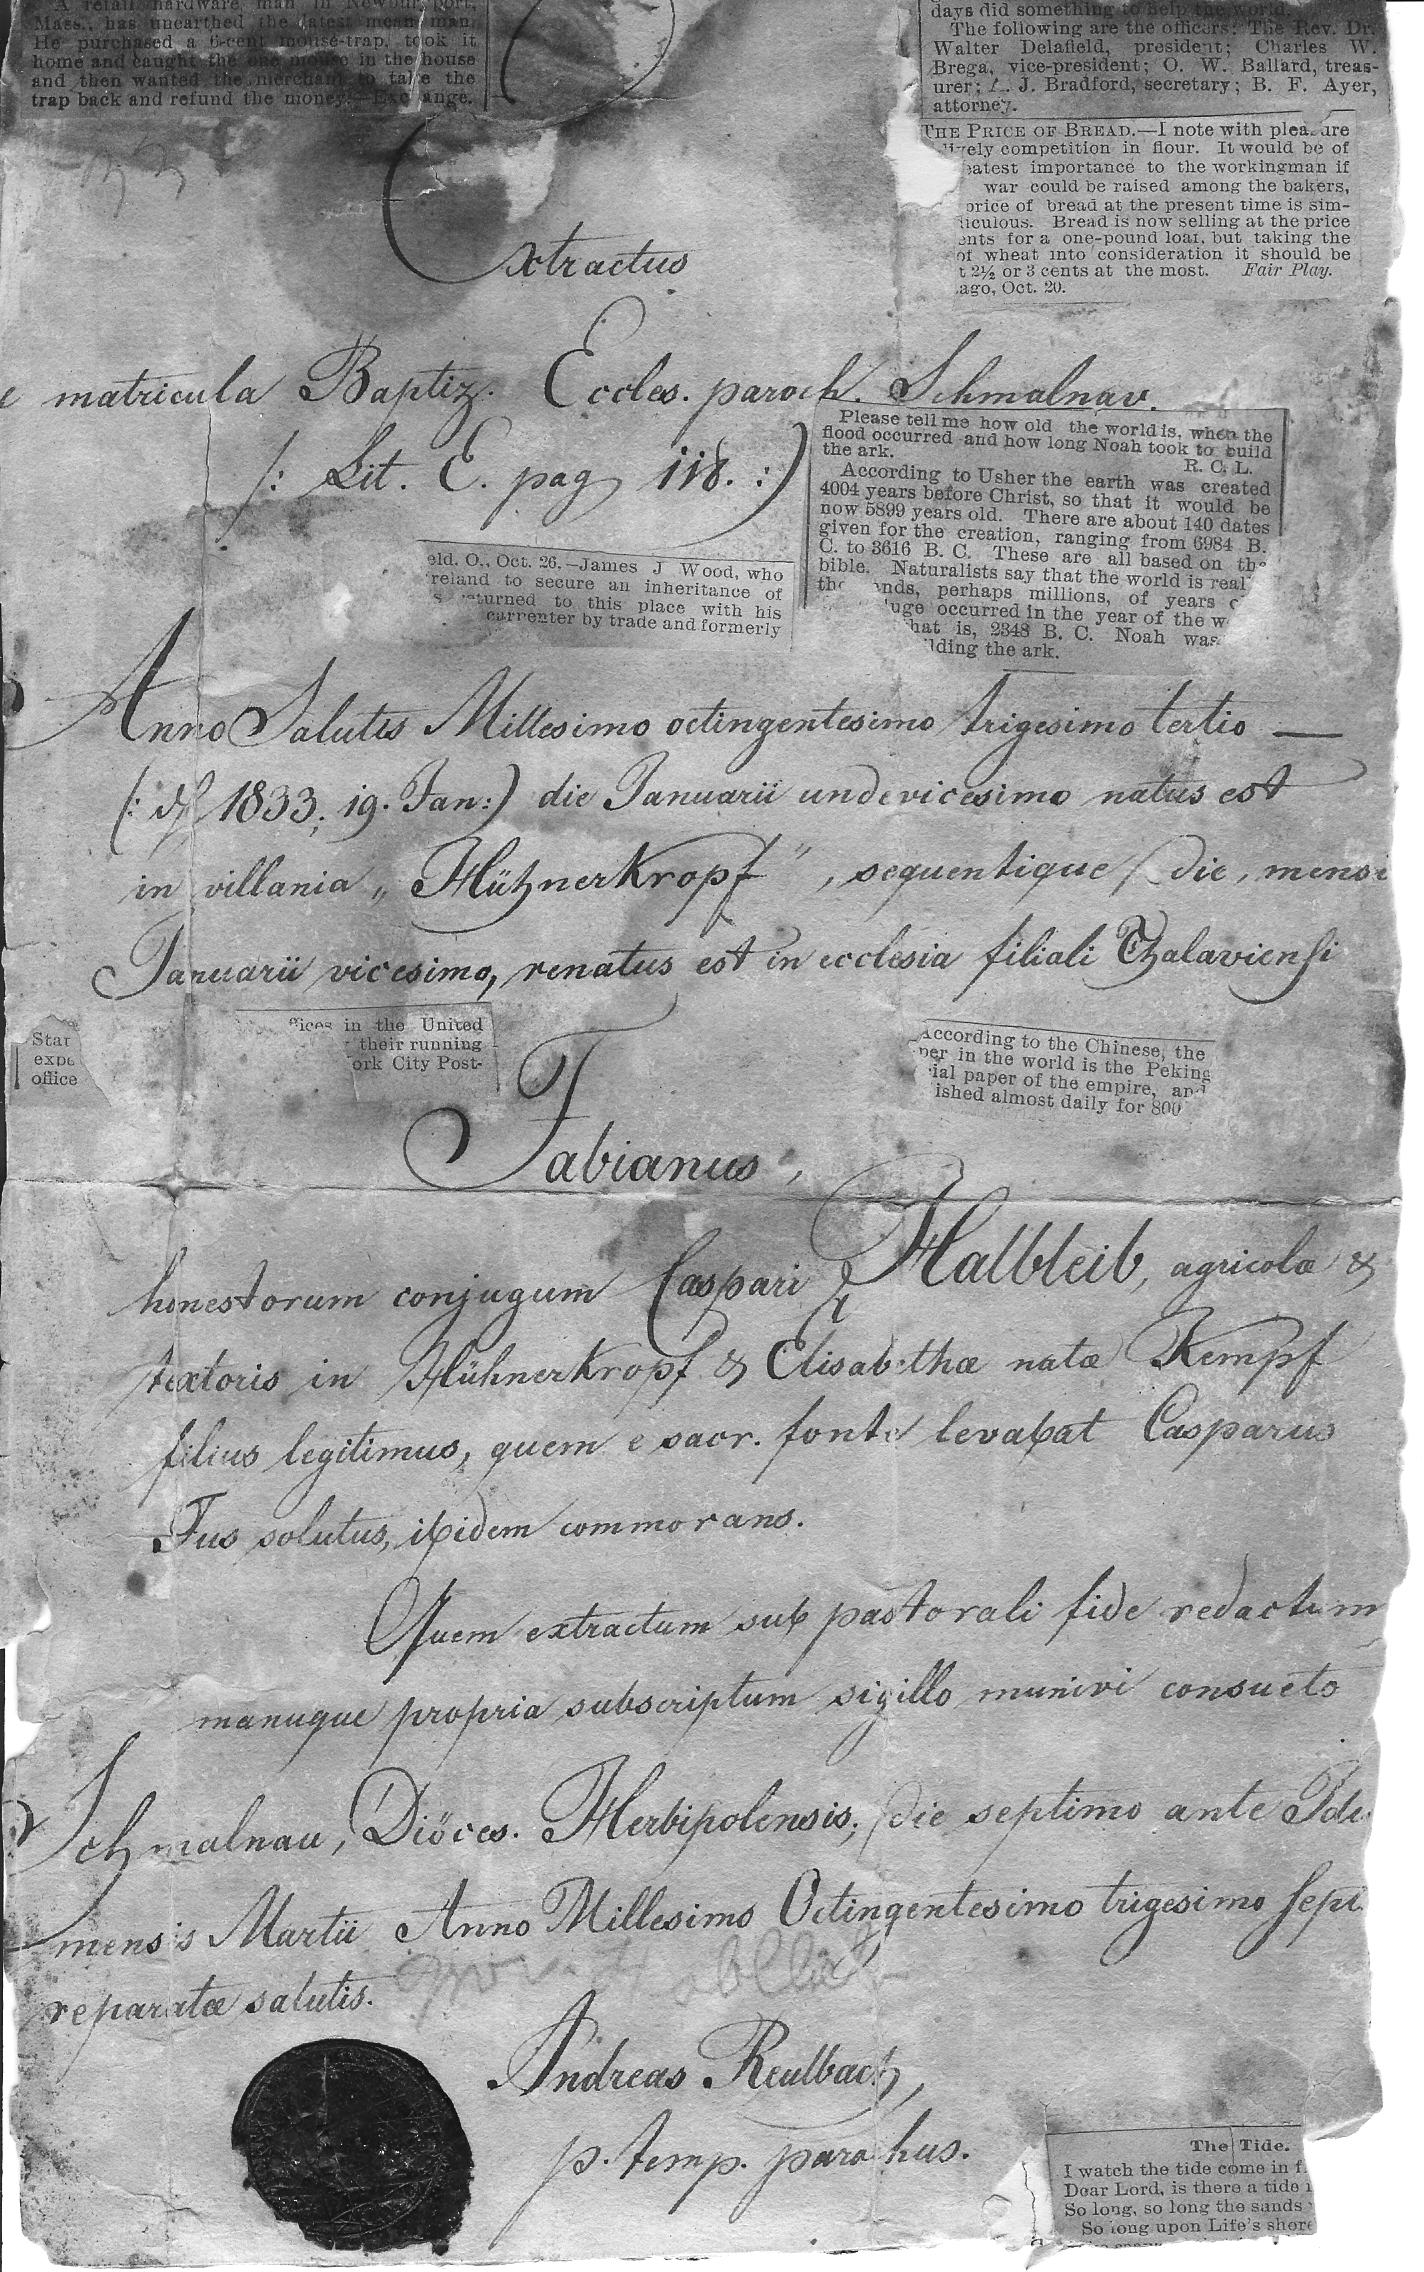 A retail hardware man in Newburyport,
Mass., has unearthed the latest mean man.
He purchased a 6-cent mouse-trap, took it
home and caught the one mouse in the house
and then wanted the merchant to take the
trap back and refund the money.—Exchange.
days did something to help the world.
The following are the officers: The Rev. Dr.
Walter Delafield, president; Charles W.
Brega, vice-president; O. W. Ballard, treas-
urer; A. J. Bradford, secretary; B. F. Ayer,
attorney.
THE PRICE OF BREAD.—I note with pleasure
lively competition in flour. It would be of
eatest importance to the workingman if
war could be raised among the bakers,
price of bread at the present time is sim-
iculous. Bread is now selling at the price
ents for a one-pound loaf, but taking the
of wheat into consideration it should be
t 2½ or 3 cents at the most. Fair Play.
ago, Oct. 20.
Extractus
e matricula Baptiz. Eccles. paroch. Schmalnav.
/: Lit. E. pag 118. :)
Please tell me how old the world is, when the
flood occurred and how long Noah took to build
the ark.
R. C. L.
According to Usher the earth was created
4004 years before Christ, so that it would be
now 5899 years old. There are about 140 dates
given for the creation, ranging from 6984 B.
C. to 3616 B. C. These are all based on the
bible. Naturalists say that the world is real
nds, perhaps millions, of years
luge occurred in the year of the w
hat is, 2348 B. C. Noah was
ilding the ark.
eld, O., Oct. 26.—James J Wood, who
reland to secure an inheritance of
s returned to this place with his
carpenter by trade and formerly
Anno Salutis Millesimo octingentesimo trigesimo tertio —
(: 1833, 19. Jan:) die Januarii undevicesimo natus est
in villania „Hühnerkropf", sequentique die, mensi
Januarii vicesimo, renatus est in ecclesia filiali Thalaviensi
Star
expe
office
ffices in the United
their running
ork City Post-
According to the Chinese, the
per in the world is the Peking
ial paper of the empire, and
ished almost daily for 800
Fabianus,
honestorum conjugum Caspari Halbleib, agricolæ &
textoris in Hühnerkropf & Elisabethæ natæ Kempf
filius legitimus, quem e sacr. fonte levabat Casparus
Fus solutus, ibidem commorans.
Quem extractum sub pastorali fide redactum
manuque propria subscriptum sigillo munivi consueto
Schmalnau, Diöces. Herbipolensis; die septimo ante Idu
mensis Martii Anno Millesimo Octingentesimo trigesimo sept
reparatæ salutis.
Andreas Reulbach,
p. temp. parochus.
The Tide.
I watch the tide come in f
Dear Lord, is there a tide
So long, so long the sands
So long upon Life's shore